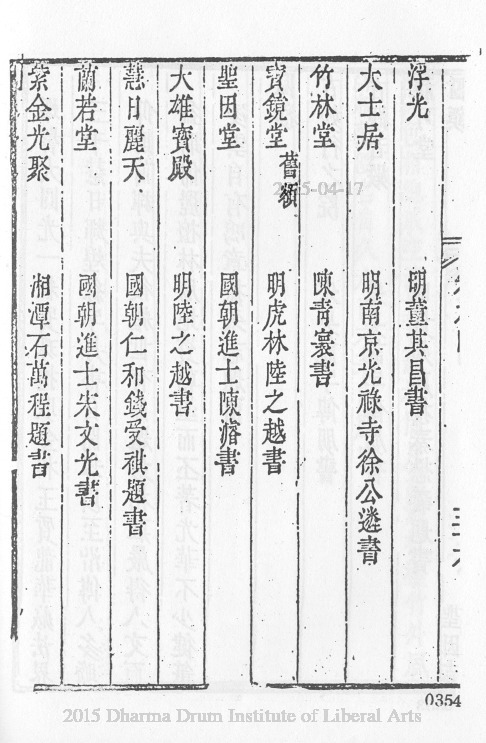 浮光　明董其昌書
大士居　明南京光祿寺徐公遴書
竹林堂　陳青寰書
寶鏡堂舊額　明虎林陸之越書
聖因堂　國朝進士陳㵾書
大雄寶殿　明陸之越書
慧日麗天　國朝仁和錢受祺題書
蘭若堂　國朝進士朱文光書
紫金光聚　湘潭石萬程題書
0354
2015-04-17
2015 Dharma Drum Institute of Liberal Arts